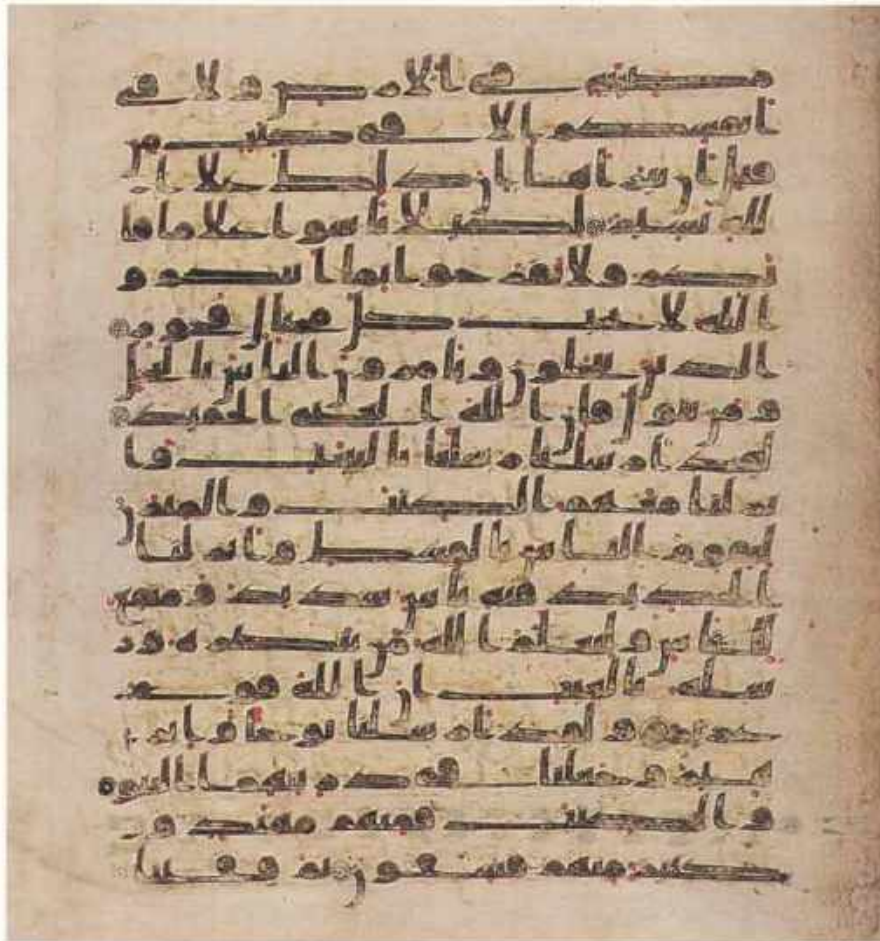 مصيبة في الارض ولا في
انفسكم الا في كتب من
قبل ان نبراها ان ذلك على ا
لله يسير لكيلا تاسوا على ما فا
تكم ولا تفرحوا بما اتيكم و
الله لا يحب كل مختال فخور
الذين يبخلون ويامرون الناس بالبخل
ومن يتول فان الله الغني الحميد
لقد ارسلنا رسلنا بالبينت وا
نزلنا معهم الكتب والميزن
ليقوم الناس بالقسط وانزلنا
الحديد فيه باس شديد ومنفع
للناس وليعلم الله من ينصره ور
سله بالغيب ان الله قوي عز
يز ولقد ارسلنا نوحا وابر
هيم وجعلنا في ذريتهما النبوة
والكتب فمنهم مهتد و
كثير منهم فسقون ثم قفينا